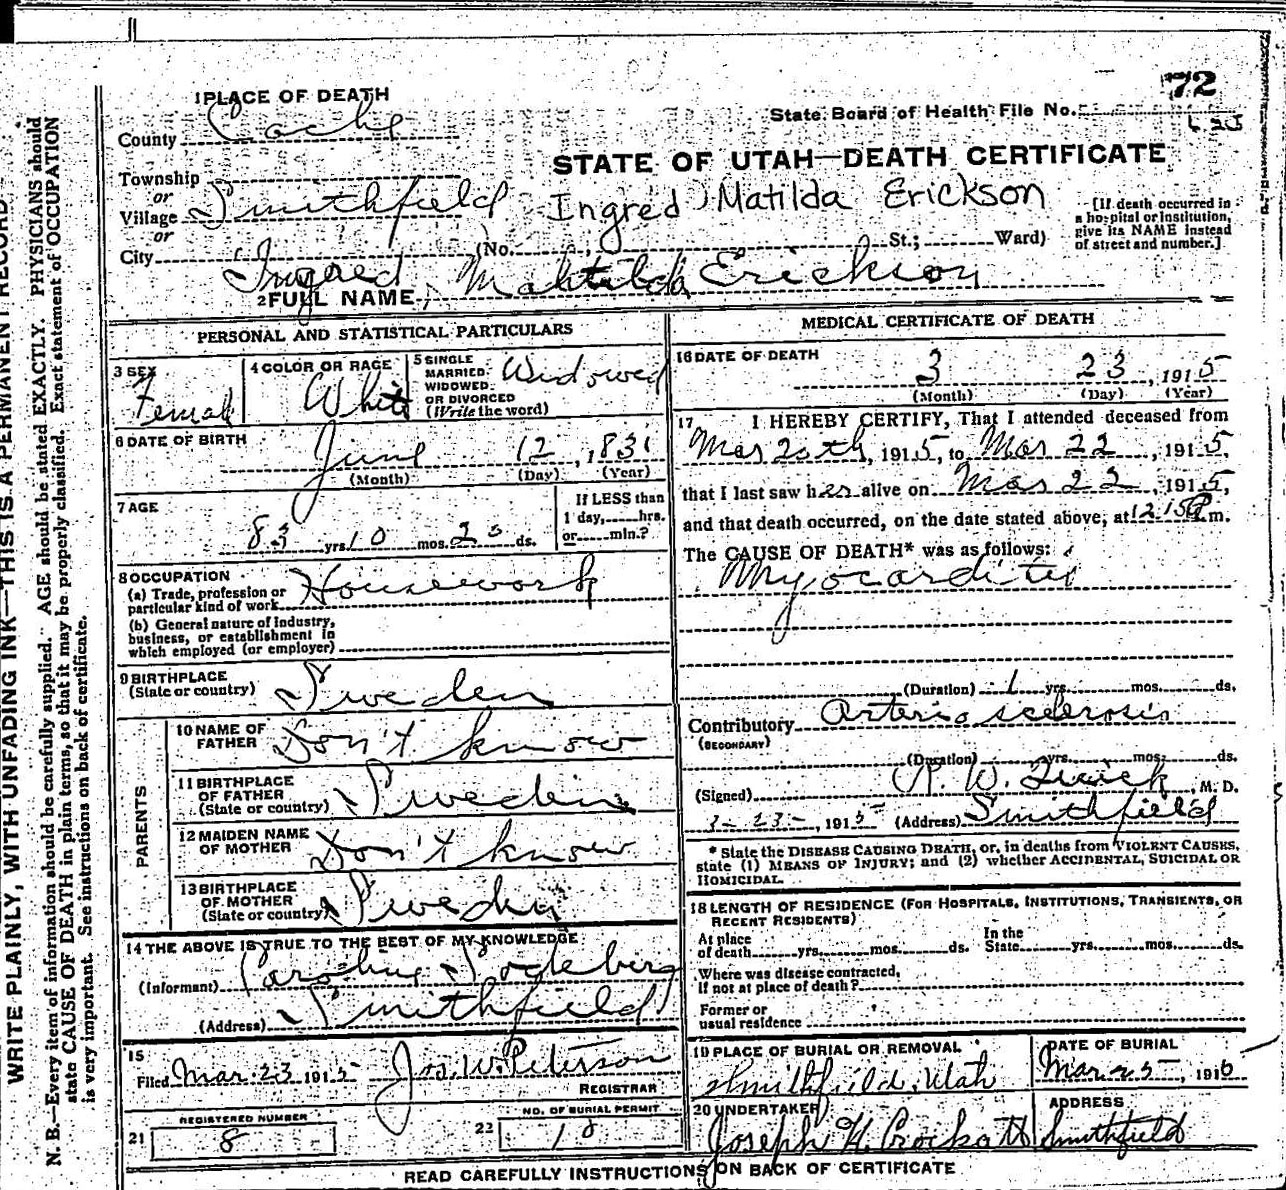 72
1 PLACE OF DEATH
State Board of Health File No.
County Cache
STATE OF UTAH—DEATH CERTIFICATE
Township
or
Village Smithfield Ingred Matilda Erickson
or
City (No. St.; Ward)
[If death occurred in
a hospital or institution,
give its NAME instead
of street and number.]
2 FULL NAME Ingred Mahtilda Erickson
PERSONAL AND STATISTICAL PARTICULARS
3 SEX
Female
4 COLOR OR RACE
White
5 SINGLE
MARRIED
WIDOWED
OR DIVORCED
(Write the word)
Widowed
6 DATE OF BIRTH
June 12, 1831
(Month) (Day) (Year)
7 AGE
83 yrs. 10 mos. ds.
If LESS than
1 day, hrs.
or min.?
8 OCCUPATION
(a) Trade, profession or
particular kind of work Housework
(b) General nature of Industry,
business, or establishment in
which employed (or employer)
9 BIRTHPLACE
(State or country) Sweden
PARENTS
10 NAME OF
FATHER Don't know
11 BIRTHPLACE
OF FATHER
(State or country) Sweden
12 MAIDEN NAME
OF MOTHER Don't know
13 BIRTHPLACE
OF MOTHER
(State or country) Sweden
14 THE ABOVE IS TRUE TO THE BEST OF MY KNOWLEDGE
(Informant) Caroline
(Address) Smithfield
15
Filed Mar. 23 1915 Jos. W. Peterson
REGISTRAR
21 REGISTERED NUMBER
8
22 NO. OF BURIAL PERMIT
MEDICAL CERTIFICATE OF DEATH
16 DATE OF DEATH
3 23, 1915
(Month) (Day) (Year)
17 I HEREBY CERTIFY, That I attended deceased from
Mar 20th, 1915, to Mar 22, 1915,
that I last saw her alive on Mar 22, 1915,
and that death occurred, on the date stated above, at 12.15 P.m.
The CAUSE OF DEATH* was as follows:
Myocarditis
(Duration) 1 yrs. mos. ds.
Contributory Arterio sclerosis
(SECONDARY)
(Duration) yrs. mos. ds.
(Signed) R. W. , M. D.
3-23-, 1915 (Address) Smithfield
* State the DISEASE CAUSING DEATH, or, in deaths from VIOLENT CAUSES,
state (1) MEANS OF INJURY; and (2) whether ACCIDENTAL, SUICIDAL OR
HOMICIDAL.
18 LENGTH OF RESIDENCE (FOR HOSPITALS, INSTITUTIONS, TRANSIENTS, OR
RECENT RESIDENTS)
At place
of death yrs. mos. ds.
In the
State yrs. mos. ds.
Where was disease contracted,
if not at place of death?
Former or
usual residence
19 PLACE OF BURIAL OR REMOVAL
Smithfield, Utah
DATE OF BURIAL
Mar 25, 1915
20 UNDERTAKER
Joseph H Crockatt
ADDRESS
Smithfield
READ CAREFULLY INSTRUCTIONS ON BACK OF CERTIFICATE
WRITE PLAINLY, WITH UNFADING INK—THIS IS A PERMANENT RECORD
N. B.—Every item of information should be carefully supplied. AGE should be stated EXACTLY. PHYSICIANS should
state CAUSE OF DEATH in plain terms, so that it may be properly classified. Exact statement of OCCUPATION
is very important. See instructions on back of certificate.